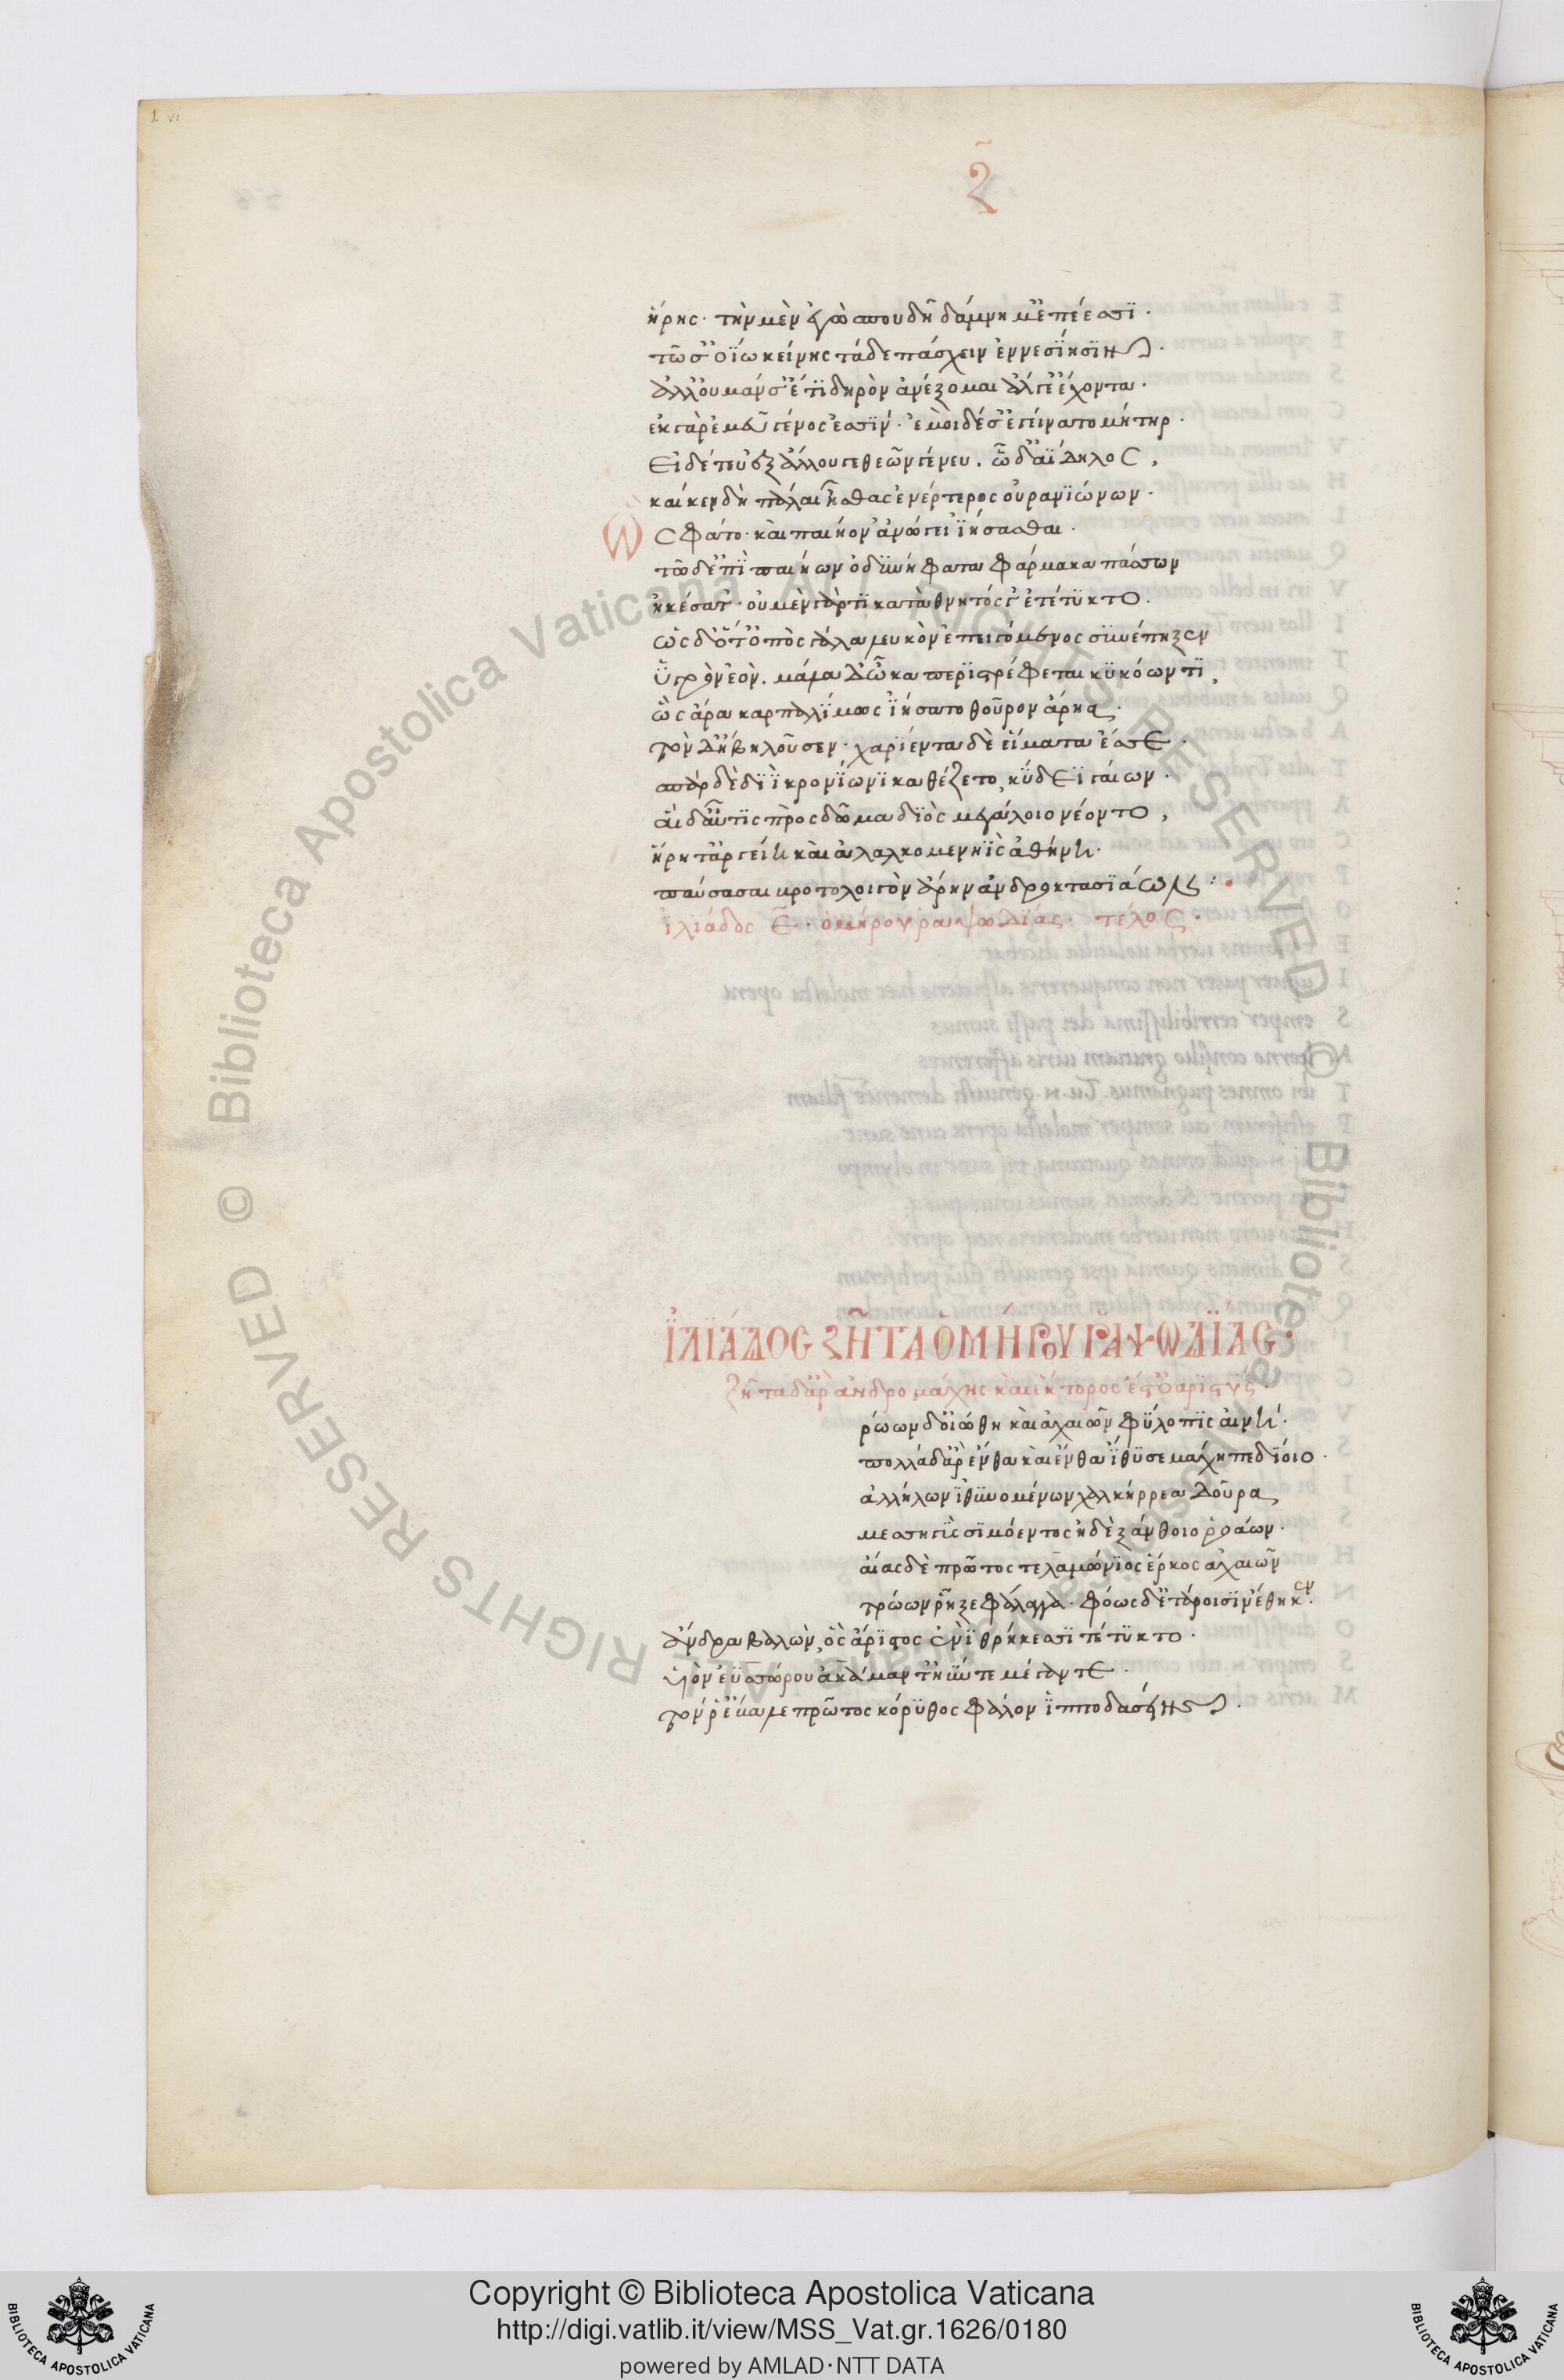 ζ̄
ἥρης· τὴν μὲν ἐγὼ σπουδῇ δάμνημ' ἐπέεσσϊ·
τῶ σ' ὀΐω κείνης τάδε πάσχειν ἐννεσίησϊν·
ἀλλ' οὐ μάν σ' ἔτϊ δηρὸν ἀνέξομαι ἄλγε' ἔχοντα·
ἐκ γὰρ ἐμεῦ γένος ἐσσϊν· ἐμοὶ δέ σ' ἐγείνατο μήτηρ·
Εἰ δέ τευ ἐξ ἄλλου γε θεῶν γένευ. ὧδ' ἀΐδηλος,
καί κεν δὴ πάλαι ἦσθας ἐνέρτερος οὐρανϊώνων·
Ὣς φάτο· καὶ παιήον' ἀνώγει ἰήσασθαι·
τῶ δ' ἐπὶ παιήων ὀδϋνήφατα φάρμακα πάσσων
ἠκέσατ'· οὐ μὲν γάρ τϊ καταθνητός γ' ἐτέτϋκτο.
ὡς δ' ὅτ' ὀπὸς γάλα λευκὸν ἐπειγόμενος σϋνέπηξεν
ὑγρὸν ἐὸν. μάλα δ' ὦκα περϊστρέφεται κϋκόωντϊ,
ὣς ἄρα καρπαλΐμως ἰήσατο θοῦρον ἄρηα·
τὸν δ' ἥβη λοῦσεν· χαρΐεντα δὲ εἵματα ἕσσε·
πὰρ δὲ δϊῒ κρονΐωνϊ καθέζετο, κύδεϊ γαίων·
αἱ δ' αὖτϊς πρὸς δῶμα δϊὸς μεγάλοιο νέοντο,
ἥρη τ' ἀργείη καὶ ἀλαλκομενηῒς ἀθήνη·
παύσασαι βροτολοιγὸν ἄρην ἀνδροκτασϊάων :·
ἰλϊάδος ε̄· ὁμήρου ῥαψωδΐας· τέλος·
ἸΛΪΆΔΟΣ ΖΗ͂ΤΑ ὉΜΉΡΟΥ ῬΑΨΩΔΪΆΣ·
ζῆτα δ' ἄρ' ἀνδρομάχης καὶ ἕκτορος ἐστ' ὀαρϊστύς·
ρώων δ' οἰώθη καὶ ἀχαιῶν φϋλοπϊς αἰνή·
πολλὰ δ' ἄρ' ἔνθα καὶ ἔνθα ἴθϋσε μάχη πεδΐοιο·
ἀλλήλων ἰθϋνομένων χαλκήρρεα δοῦρα
μεσσηγϊς σϊμόεντος ἠδὲ ξάνθοιο ῥοάων·
αἴας δὲ πρῶτος τελαμώνϊος ἕρκος ἀχαιῶν
τρώων ῥῆξε φάλαγγα· φόως δ' ἑτάροισϊν ἔθηκεν·
ἄνδρα βαλὼν, ὃς ἄρϊστος ἐνῒ θρήκεσσϊ τέτϋκτο·
ὑϊὸν ἐϋσσώρου ἀκάμαντ' ἠΰν τε μέγαν τε·
τόν ῥ' ἔβαλε πρῶτος κόρϋθος φάλον ἱπποδασείης·
Copyright © Biblioteca Apostolica Vaticana
http://digi.vatlib.it/view/MSS_Vat.gr.1626/0180
powered by AMLAD·NTT DATA